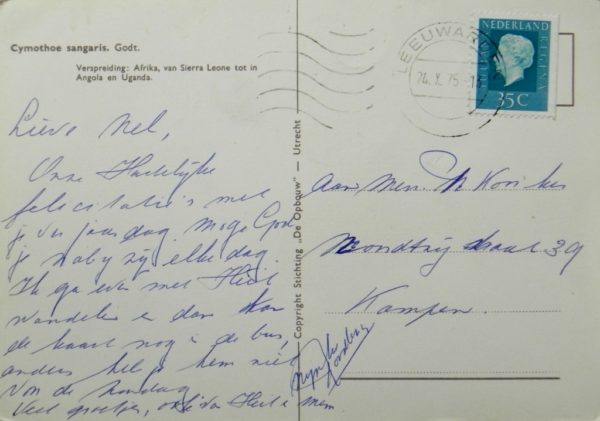 Cymothoe sangaris. Godt.
Verspreiding: Afrika, van Sierra Leone tot in
Angola en Uganda.
Lieve Nel,
Onze Hartelijke
felicitatie's met
je verjaardag. Moge God
je nabij zij elke dag.
Ik ga even met
wandelen e dan kan
de kaart nog i de bus,
anders heb je hem niet
von de Zondag
Veel groetjes,
Copyright Stichting „De Opbouw" — Utrecht
LEEUWARDEN
24.X.75
NEDERLAND
35C
Aan Mevr.
39
Kampen.